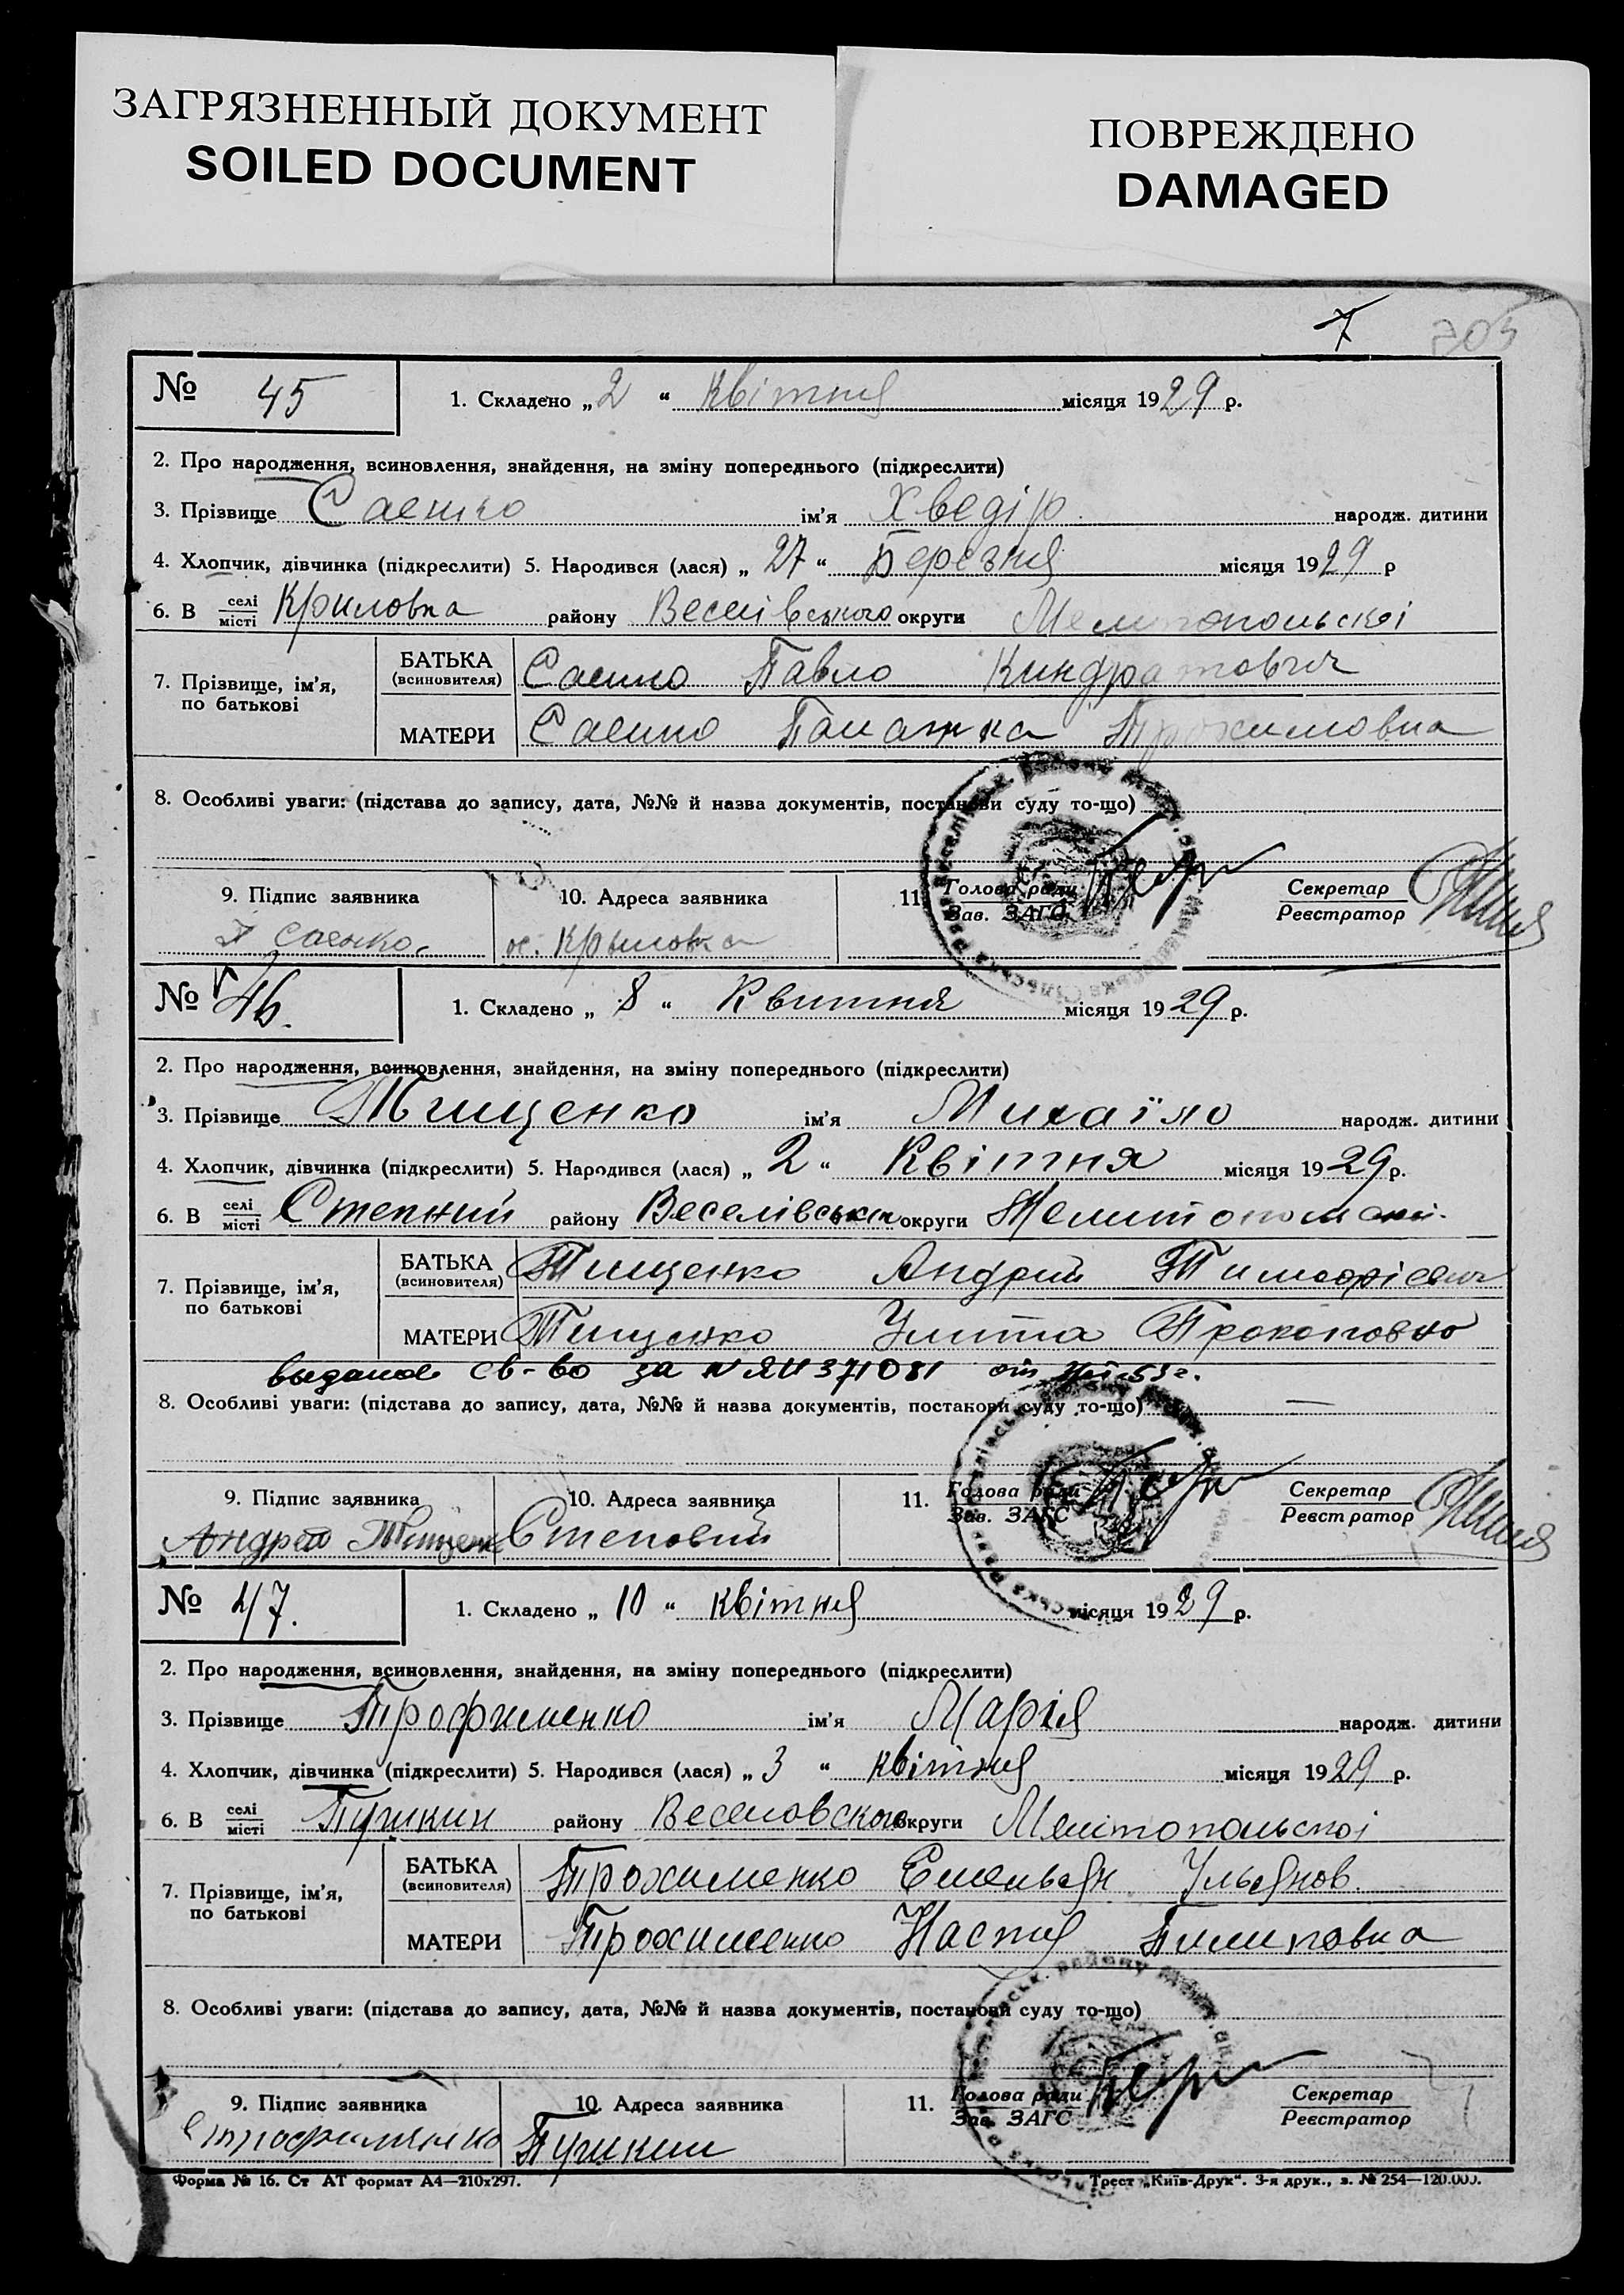 ЗАГРЯЗНЕННЫЙ ДОКУМЕНТ
SOILED DOCUMENT
ПОВРЕЖДЕНО
DAMAGED
7 205
№ 45 1. Складено „2“ Квітня місяця 1929 р.
2. Про народження, всиновлення, знайдення, на зміну попереднього (підкреслити)
3. Прізвище Саенко ім'я Хведір народж. дитини
4. Хлопчик, дівчинка (підкреслити) 5. Народився (лася) „27“ Березня місяця 1929 р
6. В селі місті Криловка району Веселівського округи Мелитопольскоі
7. Прізвище, ім'я, по батькові
БАТЬКА (всиновителя) Саенко Павло Киндратович
МАТЕРИ Саенко Панажка Трохимовна
8. Особливі уваги: (підстава до запису, дата, №№ й назва документів, постанови суду то-що)
9. Підпис заявника 10. Адреса заявника 11. Голова ради Зав. ЗАГС Секретар Реєстратор
П Саенко с. Крыловка
№ 46. 1. Складено „8“ Квитня місяця 1929 р.
2. Про народження, всиновлення, знайдення, на зміну попереднього (підкреслити)
3. Прізвище Тищенко ім'я Михаїло народж. дитини
4. Хлопчик, дівчинка (підкреслити) 5. Народився (лася) „2“ Квітня місяця 1929 р.
6. В селі місті Степний району Веселівськ округи
7. Прізвище, ім'я, по батькові
БАТЬКА (всиновителя) Тищенко Андрий Тимофієвич
МАТЕРИ Тищенко Улита Прокоповно
выдано св-во за № ЯИ 371081 от
8. Особливі уваги: (підстава до запису, дата, №№ й назва документів, постанови суду то-що) —
9. Підпис заявника 10. Адреса заявника 11. Голова ради Зав. ЗАГС Секретар Реєстратор
Андрей Тищенк Степовий
№ 47. 1. Складено „10“ квітня місяця 1929 р.
2. Про народження, всиновлення, знайдення, на зміну попереднього (підкреслити)
3. Прізвище Трофименко ім'я Марія народж. дитини
4. Хлопчик, дівчинка (підкреслити) 5. Народився (лася) „3“ квітня місяця 1929 р.
6. В селі місті Пушкин району Веселовского округи Мелітопольскоі
7. Прізвище, ім'я, по батькові
БАТЬКА (всиновителя) Трохименко Емельян Ульянов.
МАТЕРИ Трохименко Настя Пилиповна
8. Особливі уваги: (підстава до запису, дата, №№ й назва документів, постанови суду то-що)
9. Підпис заявника 10. Адреса заявника 11. Голова ради Зав. ЗАГС Секретар Реєстратор
Етрофименко Пушкин
Форма № 16. Ст АТ формат А4—210х297. Трест „Київ-Друк“. 3-я друк., з. № 254—120.000.